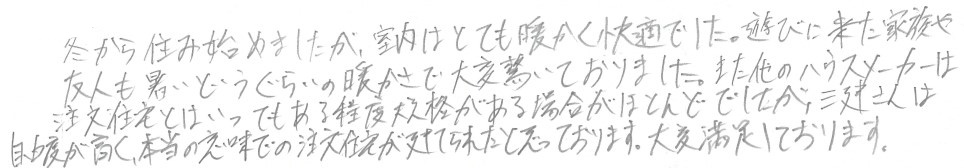 冬から住み始めましたが、室内はとても暖かく快適でした。遊びに来た家族や
友人も暑いというぐらいの暖かさで大変驚いておりました。また他のハウスメーカーは
注文住宅とはいってもある程度規格がある場合がほとんどでしたが、三建さんは
自由度が高く、本当の意味での注文住宅が建てられたと思っております。大変満足しております。